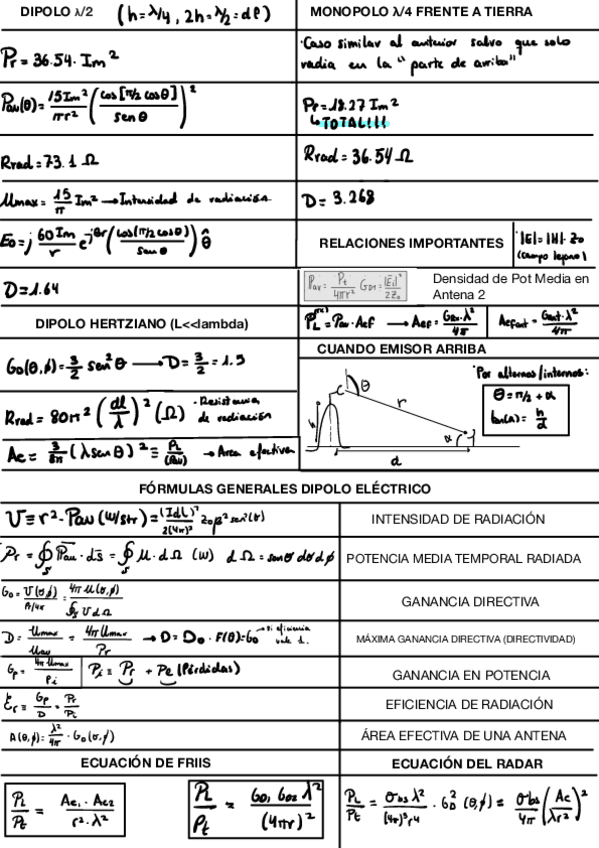 DIPOLO λ/2 (h=λ/4, 2h=λ/2=dl)
Pr = 36.54 · Im²
Pav(θ) = 15Im²/πr² (cos[π/2 cosθ]/senθ)²
Rrad = 73.1 Ω
Umax = 15/π Im² → Intensidad de radiación
E₀ = j 60Im/r e^-jβr (cos(π/2 cosθ)/senθ) θ̂
D = 1.64
DIPOLO HERTZIANO (L<<lambda)
G₀(θ,φ) = 3/2 sen²θ → D = 3/2 = 1.5
Rrad = 80π² (dl/λ)² (Ω) · Resistencia de radiación
Ae = 3/8π (λ senθ)² ≡ PL/(Pav) → Area efectiva
MONOPOLO λ/4 FRENTE A TIERRA
· Caso similar al anterior salvo que solo
radia en la "parte de arriba"
Pr = 18.27 Im²
↳ TOTAL!!!
Rrad = 36.54 Ω
D = 3.268
RELACIONES IMPORTANTES
|E| = |H| · Z₀
(campo lejano)
Pav = Pt/4πr² GD1 = |E1|²/2Z₀
Densidad de Pot Media en
Antena 2
PL = Pav · Aef → Aef = GD2·λ²/4π
CUANDO EMISOR ARRIBA
θ
r
h
α
d
· Por alternos/internos:
θ = π/2 + α
tan(α) = h/d
FÓRMULAS GENERALES DIPOLO ELÉCTRICO
U ≡ r² · Pav (W/str) = (Idl)²/2(4π)² Z₀β² sen²(θ)
INTENSIDAD DE RADIACIÓN
Pr = ∮s Pav · ds = ∮s U · dΩ (W) dΩ = senθ dθ dφ
POTENCIA MEDIA TEMPORAL RADIADA
G₀ = U(θ,φ)/Pr/4π = 4π U(θ,φ)/∮s U dΩ
GANANCIA DIRECTIVA
D = Umax/Uav = 4π Umax/Pr → D = D₀ · F(θ) = G₀ → si eficiencia vale 1.
MÁXIMA GANANCIA DIRECTIVA (DIRECTIVIDAD)
Gp = 4π Umax/Pi Pi ≡ Pr + Pe (Pérdidas)
GANANCIA EN POTENCIA
ξr ≡ Gp/D = Pr/Pi
EFICIENCIA DE RADIACIÓN
A(θ,φ) = λ²/4π · G₀(θ,φ)
ÁREA EFECTIVA DE UNA ANTENA
ECUACIÓN DE FRIIS
PL/Pt = Ae1 · Ae2/r² · λ²
PL/Pt = GD1 GD2 λ²/(4πr)²
ECUACIÓN DEL RADAR
PL/Pt = σbs λ²/(4π)³r⁴ · GD² (θ,φ) = σbs/4π (Ae/λr²)²